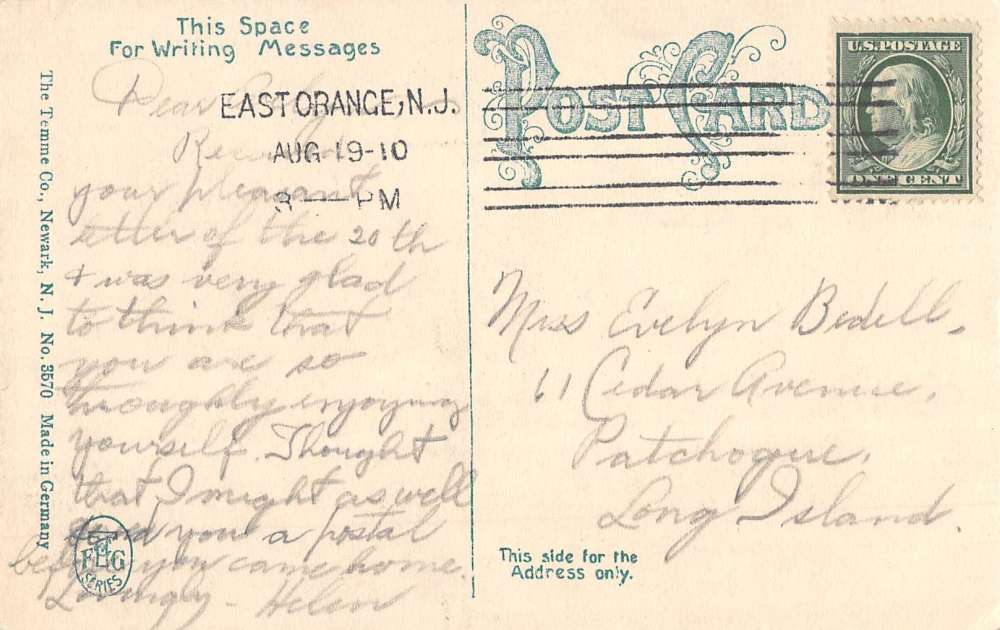 This Space
For Writing Messages
The Temme Co., Newark, N. J. No. 3570 Made in Germany
EAST ORANGE, N.J.
AUG 19-10
PM
POST CARD
U.S. POSTAGE
ONE CENT
Dear
your pleasant
letter of the 20th
& was very glad
to think that
you are so
throughly enjoying
yourself. Thought
that I might as well
send you a postal
before you came home.
Lovingly - Helen
SERIES
Miss Evelyn Bedell,
61 Cedar Avenue,
Patchogue,
Long Island.
This side for the
Address only.